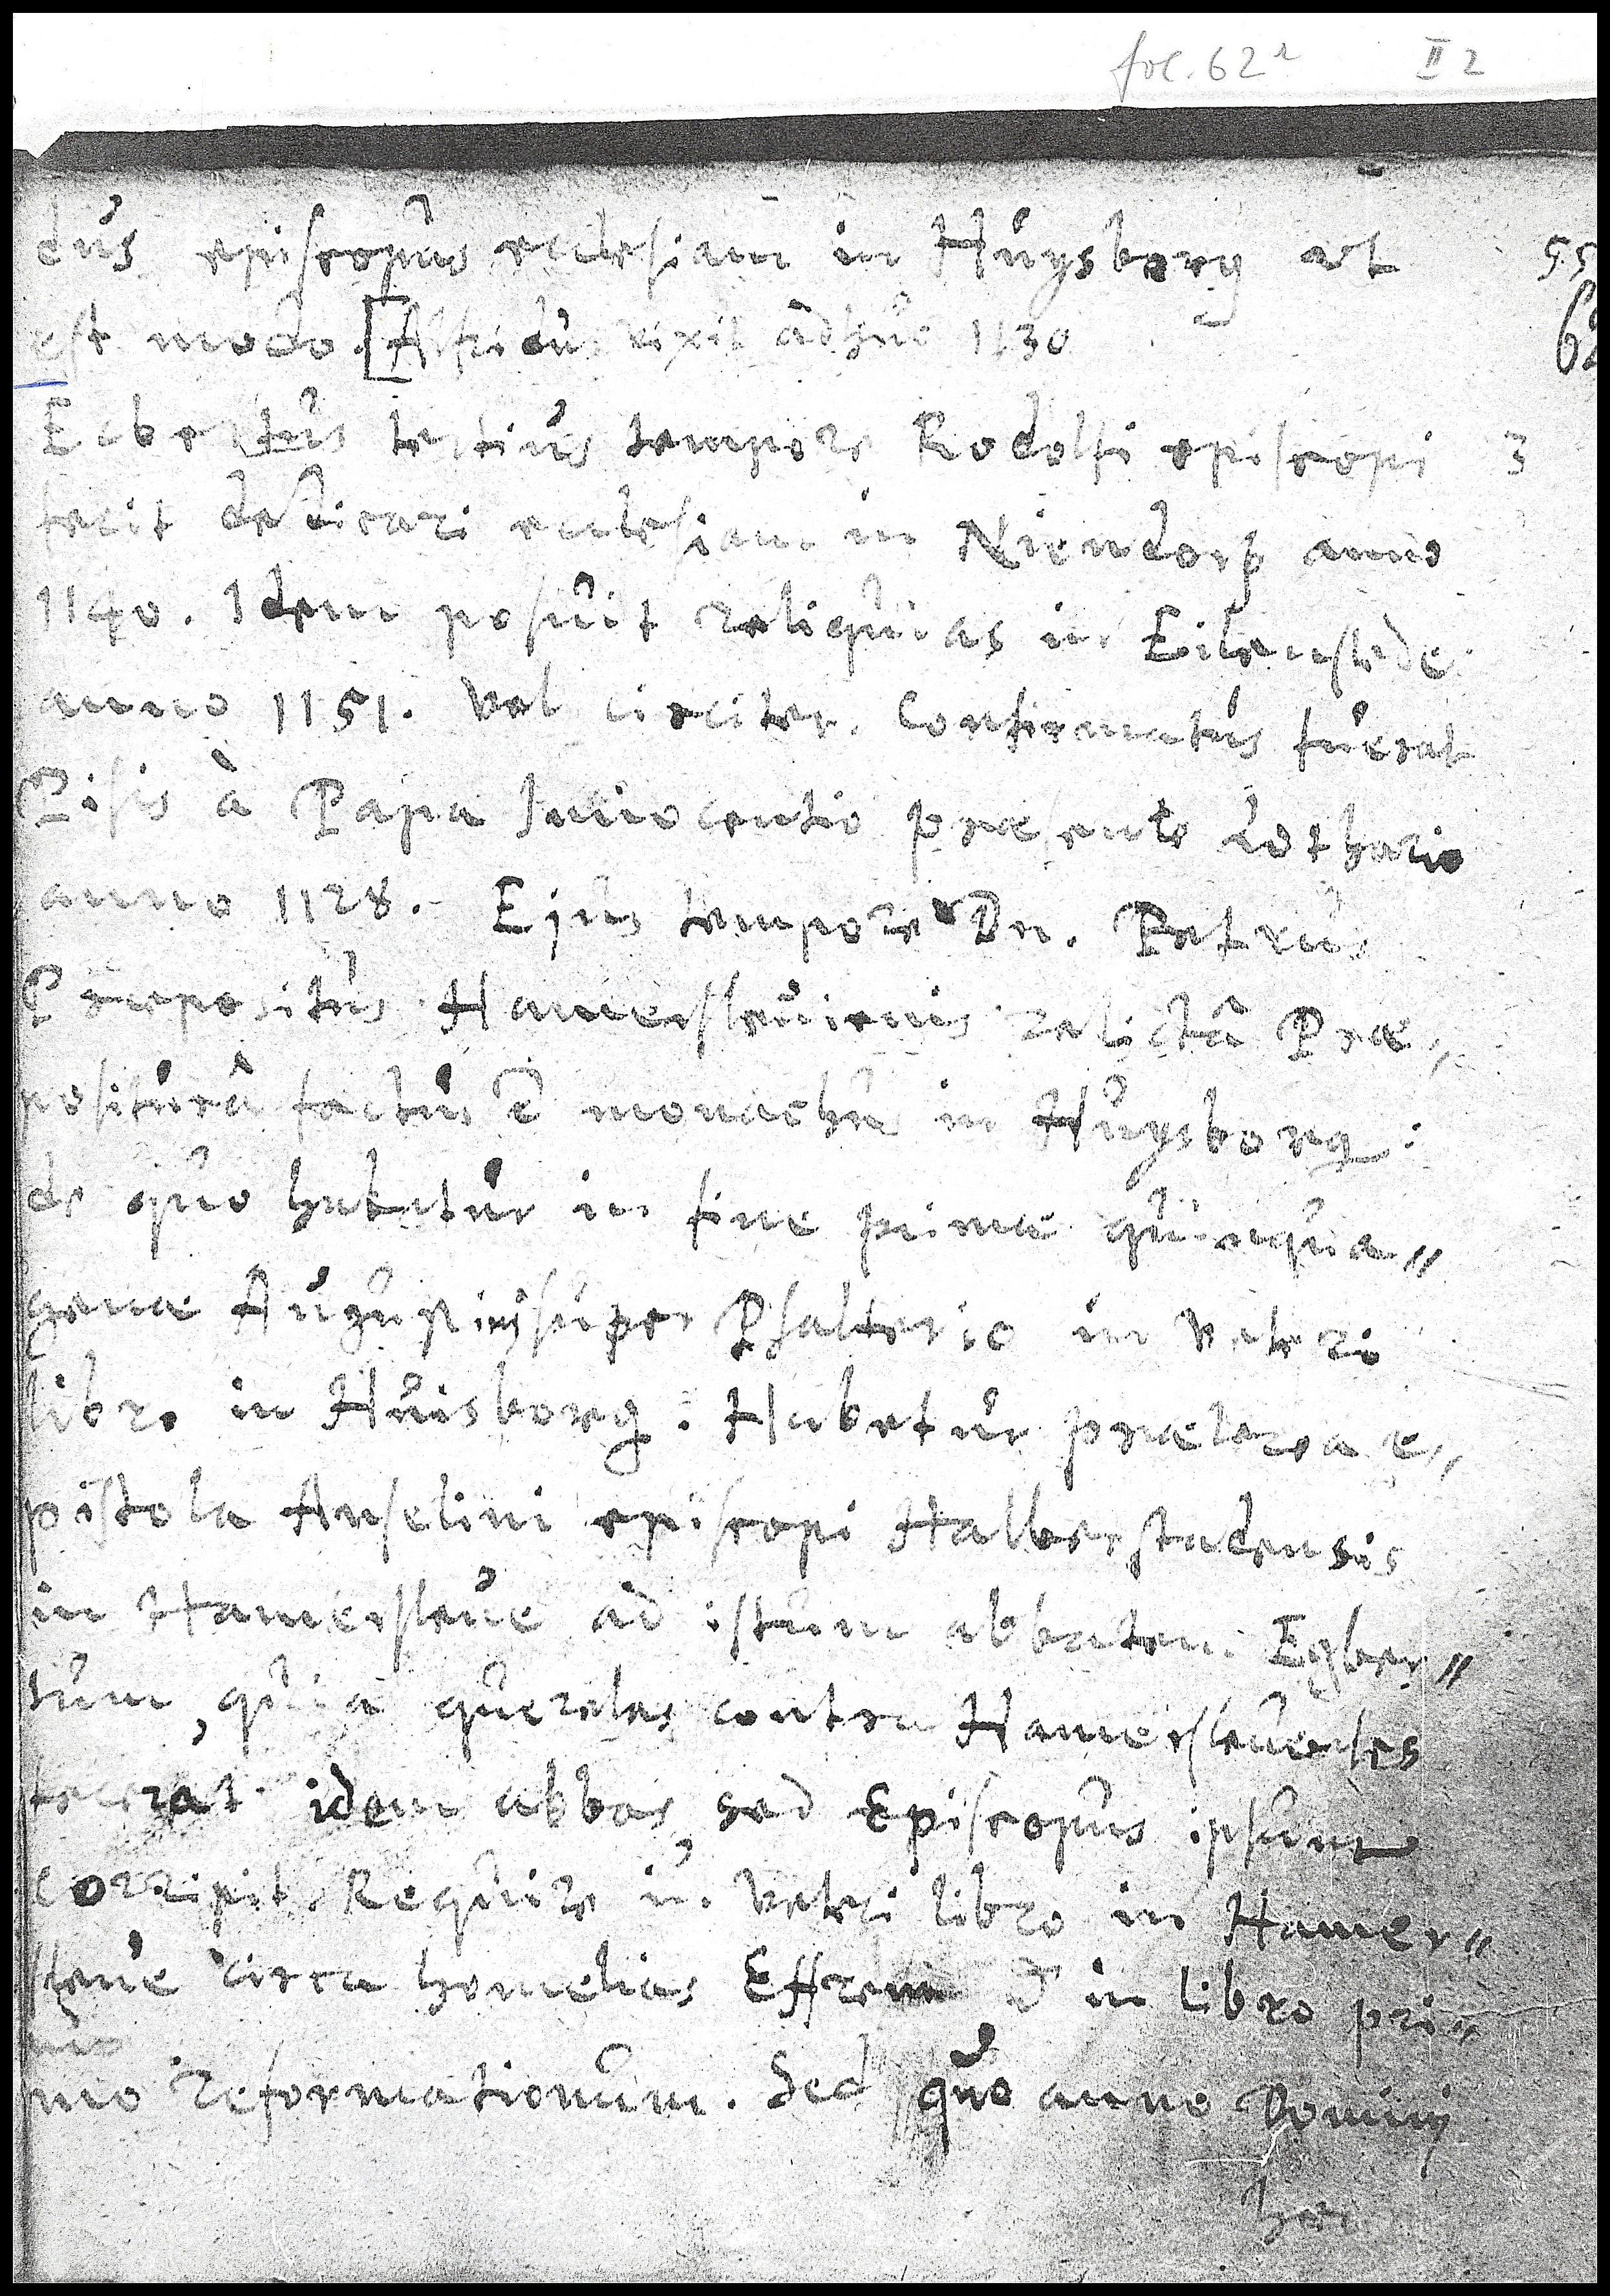 fol. 62r II 2
dus episcopus ecclesiam in Huysborg ut 55
est modo. [Alfridus vixit adhuc 1130 62
Ecbertus tertius tempore Rodolfi episcopi 3
fecit dedicari ecclesiam in Niendorp anno
1140. Idem posuit reliquias in Eilenstede
anno 1151. vel circiter. Confirmatus fuerat
Pisis à Papa Innocentio præsente Lothario
anno 1128. Ejus tempore Dn. Petrus
Præpositus Hamerslevienis relictâ Præ„
positurâ factus ē monachus in Huysborg:
de quo habetur in fine primæ quinqua„
genæ Augustini super Psalterio in veteri
libro in Huisborg: Habetur præterea e„
pistola Anselmi episcopi Halberstadensis
in Hamersleve ad istum abbatem Egber„
tum, quia querelas contra Hamerslevenses
fecerat idem abbas, sed Episcopus ipsum
corripit. Require in veteri libro in Hamer„
sleve circa homelias Effrem & in libro pri„
mo reformationum. Sed quo anno Dominj
hæc